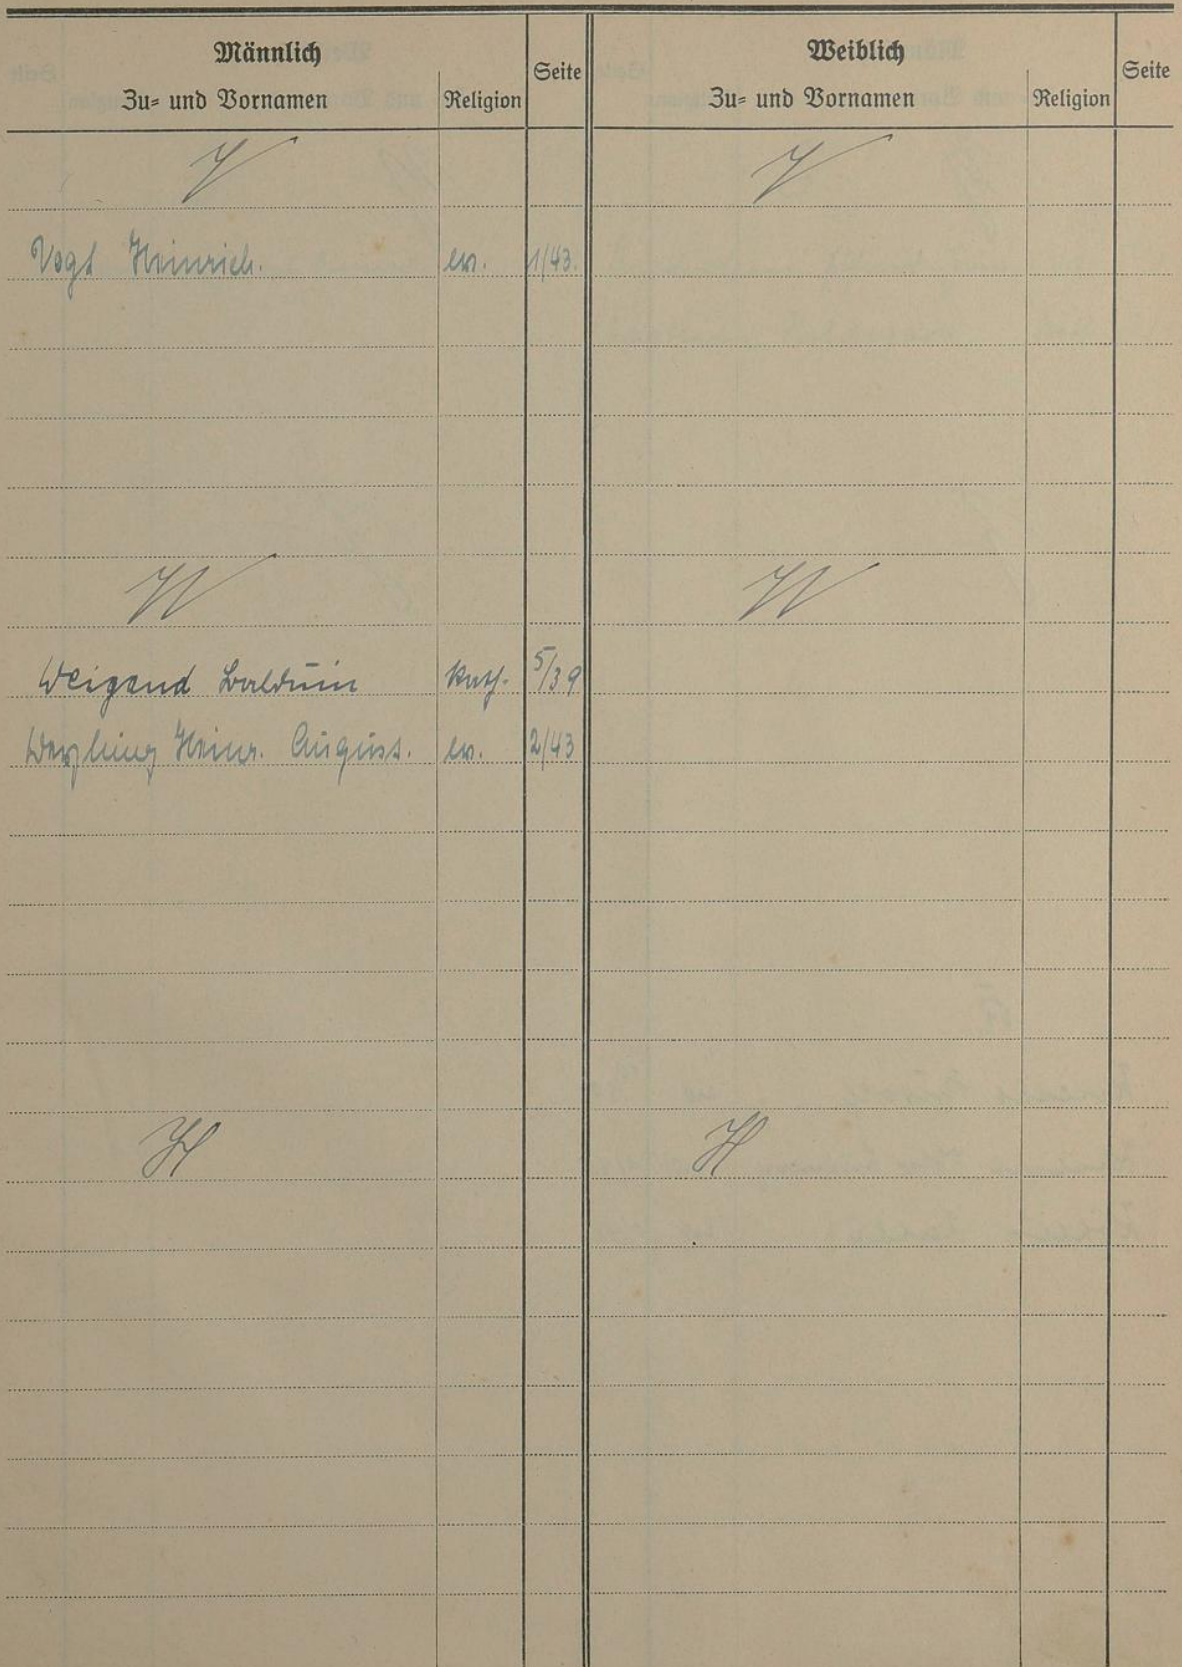 Männlich
Zu= und Vornamen
Religion
Seite
Weiblich
Zu= und Vornamen
Religion
Seite
V
V
Vogt Heinrich. ev. 1/43.
W
W
Weigand Balduin kath. 5/39
Heinr. August. ev. 2/43